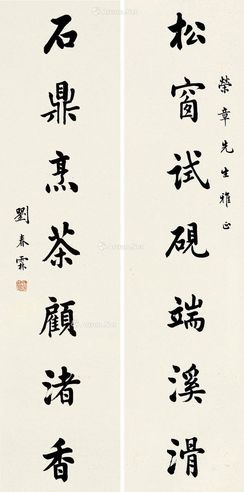 榮章先生雅正
松窗試硯端溪滑
石鼎烹茶顧渚香
劉春霖